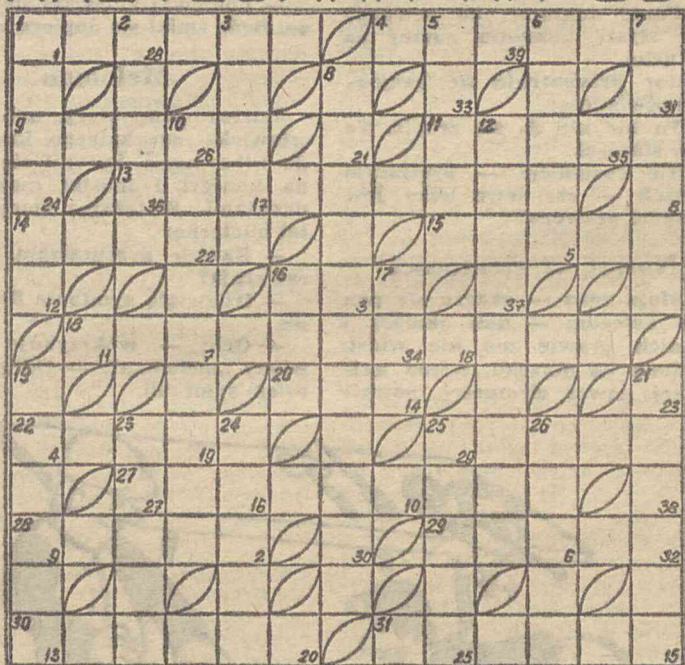 1 2 3 4 5 6 7
1 28 39
8
33 31
9 10 11 12
26 21 35
13
24 36 17 8
14 15
22 5
16 17
12 3 37
18
11 7 34 18
19 20 21
14 23
22 23 24 25 26
4 19 29
27
27 16 10 38
28 29
9 2 30 6 32
30 31
13 20 25 15